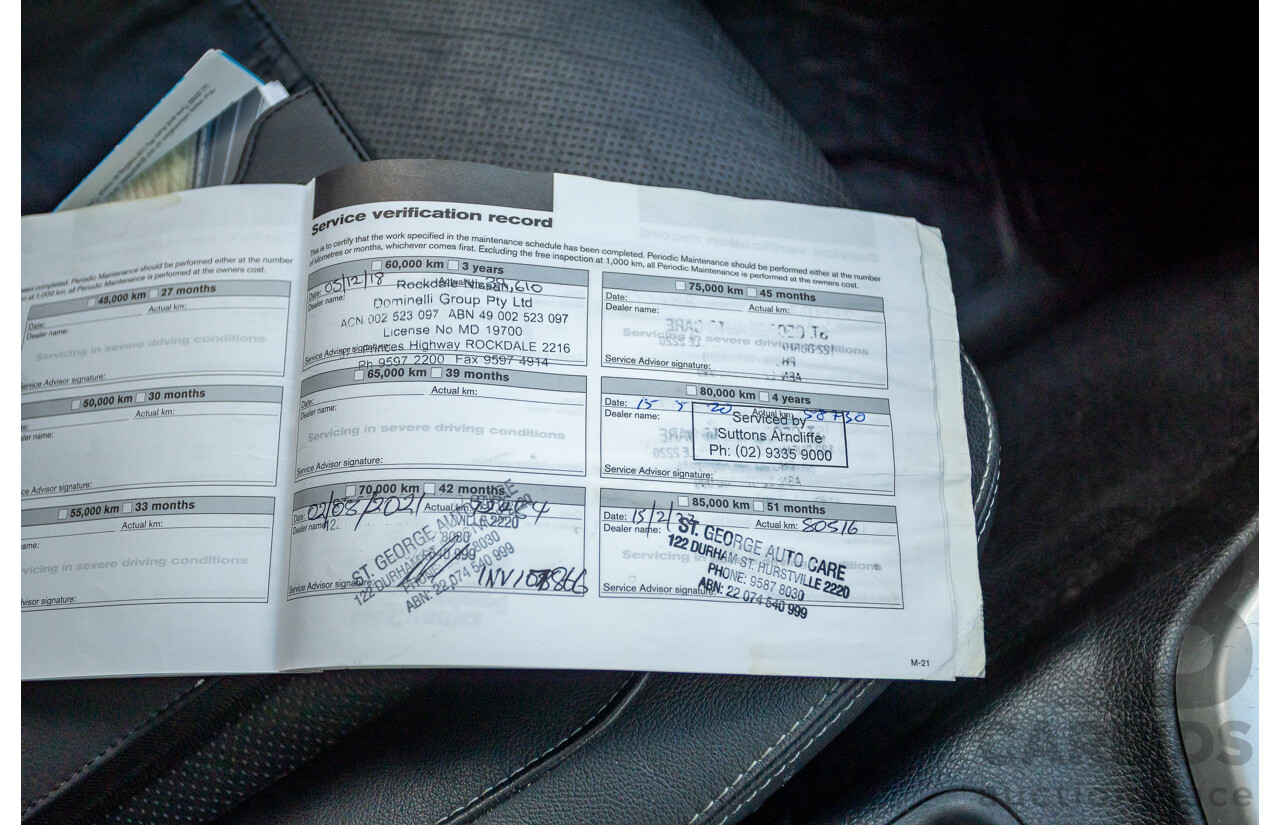 Service verification record
This is to certify that the work specified in the maintenance schedule has been completed. Periodic Maintenance should be performed either at the number
of kilometres or months, whichever comes first. Excluding the free inspection at 1,000 km, all Periodic Maintenance is performed at the owners cost.
een completed. Periodic Maintenance should be performed either at the number
n at 1,000 km, all Periodic Maintenance is performed at the owners cost.
45,000 km 27 months
Date: Actual km:
Dealer name:
Servicing in severe driving conditions
Service Advisor signature:
50,000 km 30 months
Actual km:
aler name:
ce Advisor signature:
55,000 km 33 months
Actual km:
ame:
vicing in severe driving conditions
visor signature:
60,000 km 3 years
Date: 05/12/18 Actual km:
Dealer name:
Rockdale Nissan
Dominelli Group Pty Ltd
ACN 002 523 097 ABN 49 002 523 097
License No MD 19700
Princes Highway ROCKDALE 2216
Service Advisor signature:
Ph 9597 2200 Fax 9597 4914
65,000 km 39 months
Date: Actual km:
Dealer name:
Servicing in severe driving conditions
Service Advisor signature:
70,000 km 42 months
Date: 02/03/2021 Actual km:
Dealer name:
ST. GEORGE AUTO CARE
122 DURHAM ST. HURSTVILLE 2220
PHONE: 9587 8030
ABN: 22 074 540 999
Service Advisor signature:
75,000 km 45 months
Date: Actual km:
Dealer name:
Servicing in severe driving conditions
Service Advisor signature:
80,000 km 4 years
Date: 15 5 20 Actual km: 58730
Dealer name:
Serviced by
Suttons Arncliffe
Ph: (02) 9335 9000
Service Advisor signature:
85,000 km 51 months
Date: 15/2/ Actual km: 80516
Dealer name:
ST. GEORGE AUTO CARE
122 DURHAM ST. HURSTVILLE 2220
PHONE: 9587 8030
ABN: 22 074 540 999
Servicing
Service Advisor signature:
M-21